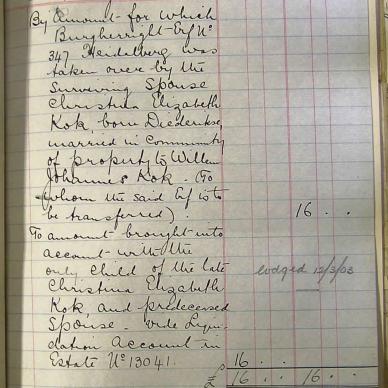 By Amount for which
Burgherright Erf No
347 Heidelberg was
taken over by the
Surviving Spouse
Christina Elizabeth
Kok, born Diederikse,
married in Community
of property to Willem
Johannes Kok. (To
whom the said Erf is to
be transferred). 16 . .
To amount brought into
account with the
only child of the late lodged 12/3/03
Christina Elizabeth
Kok, and predeceased
Spouse. vide Liqui-
dation Account in
Estate No 13041. 16 . .
£ 16 . . 16 . .